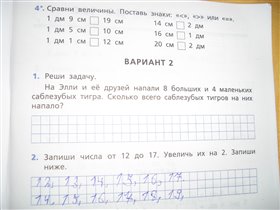 4*. Сравни величины. Поставь знаки: «<», «>» или «=».
1 дм 9 см □ 19 см 14 см □ 2 дм
1 дм 5 см □ 10 см 16 см □ 1 дм
1 дм □ 12 см 20 см □ 2 дм
ВАРИАНТ 2
1. Реши задачу.
На Элли и её друзей напали 8 больших и 4 маленьких
саблезубых тигра. Сколько всего саблезубых тигров на них
напало?
2. Запиши числа от 12 до 17. Увеличь их на 2. Запиши
ниже.
12, 13, 14, 15, 16, 17.
14, 15, 16, 17, 18, 19.